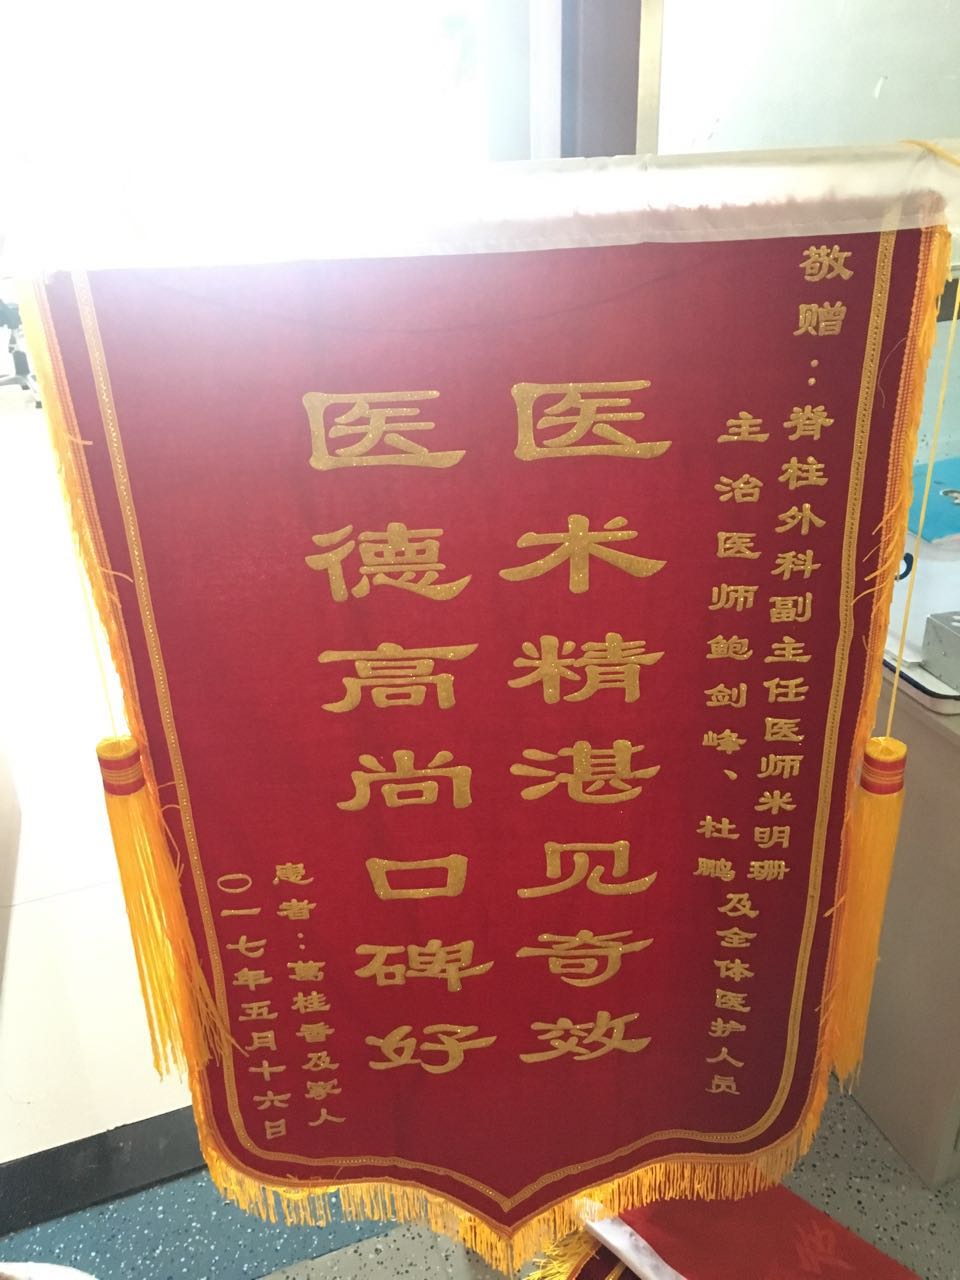 敬赠：脊柱外科副主任医师米明珊
主治医师鲍剑峰、杜鹏及全体医护人员
医术精湛见奇效
医德高尚口碑好
患者：葛桂香及家人
〇一七年五月十六日